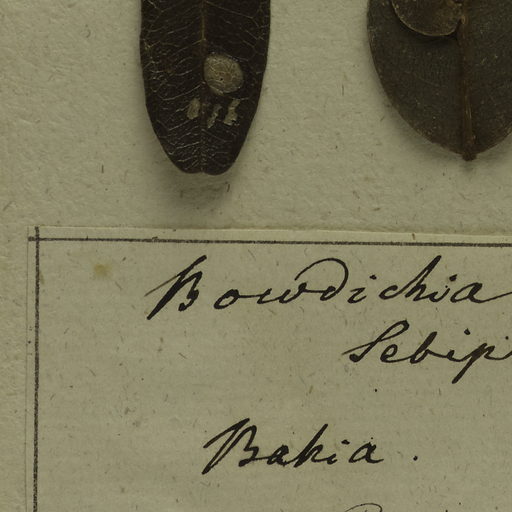 Bowdichia
Sebip
Bahia.